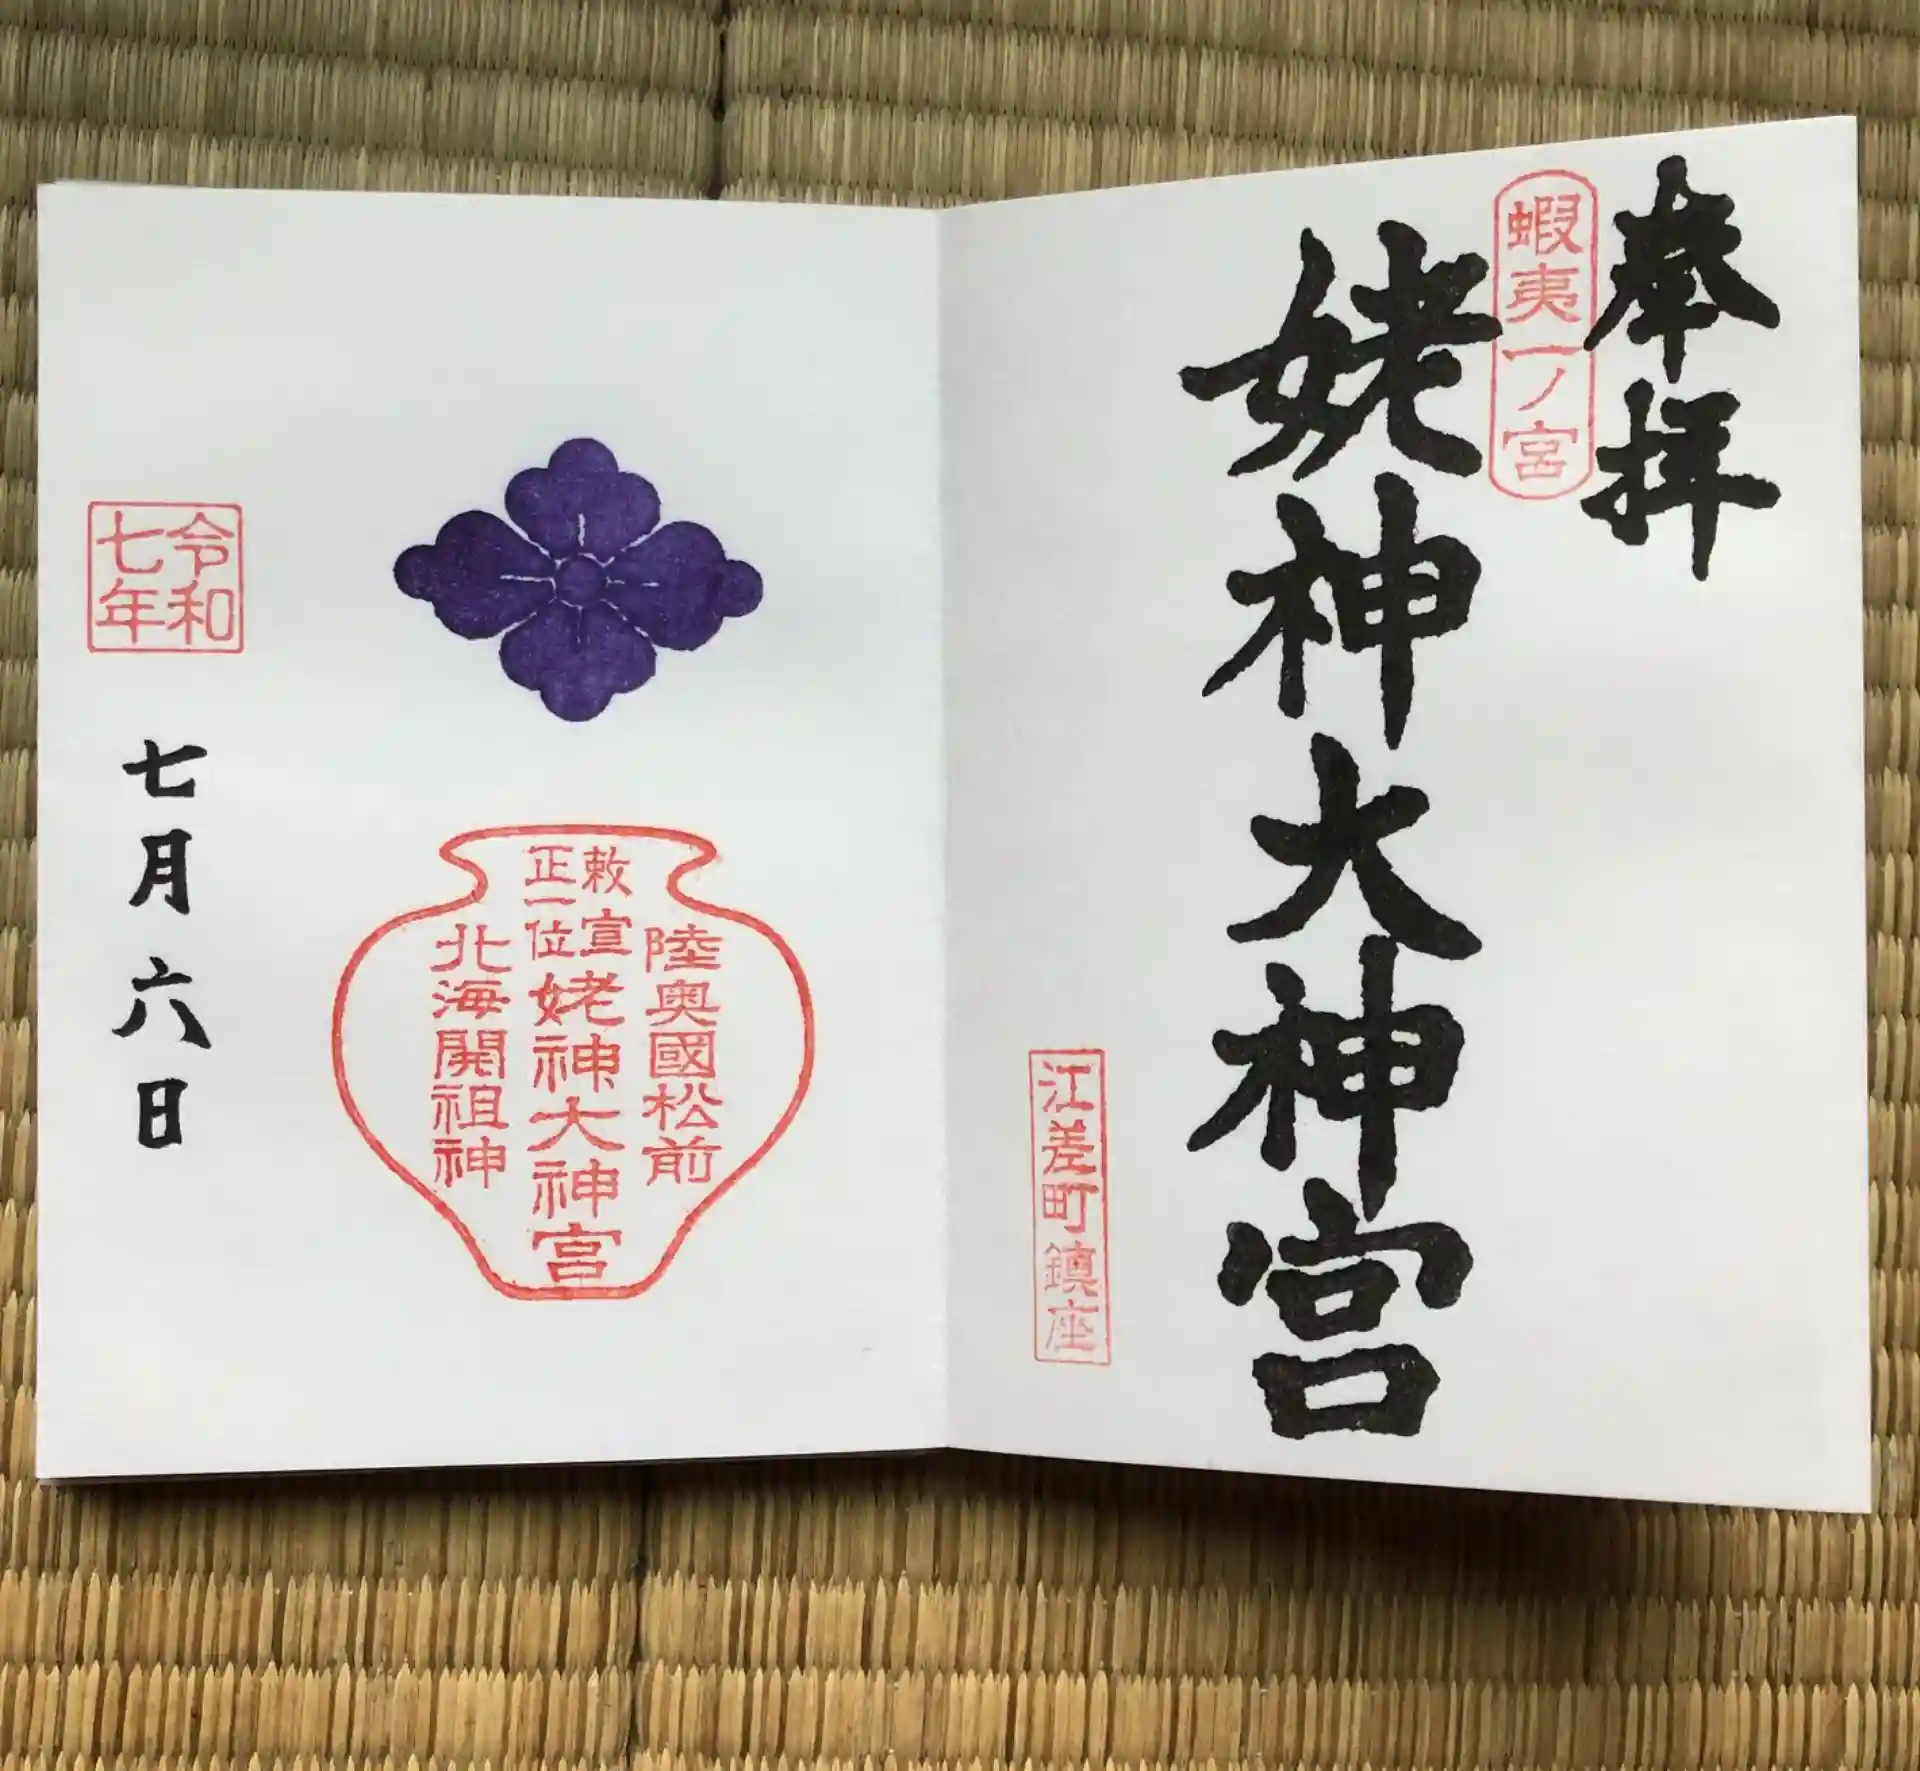 奉拝
蝦夷一ノ宮
姥神大神宮
江差町鎮座
陸奥國松前
敕宣
正一位
姥神大神宮
北海開祖神
令和
七年
七月六日